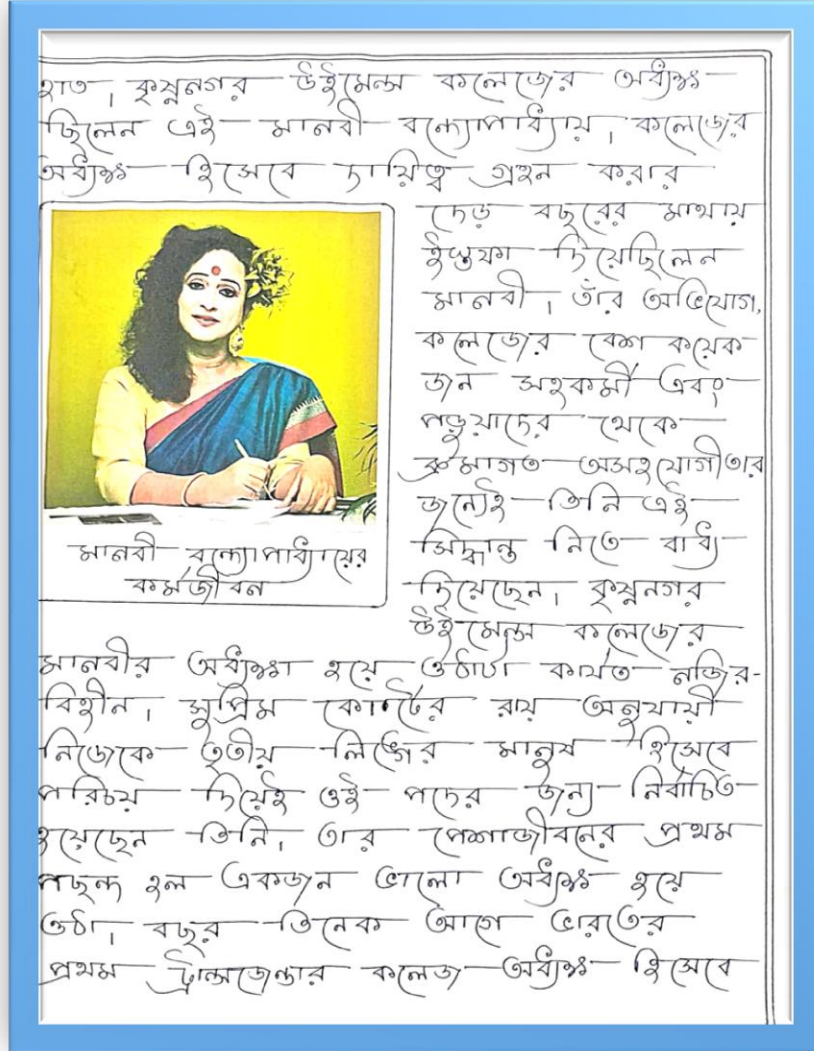 হাত, কৃষ্ণনগর উইমেন্স কলেজের অধ্যক্ষ
ছিলেন এই মানবী বন্দ্যোপাধ্যায়, কলেজের
অধ্যক্ষ হিসেবে দায়িত্ব গ্রহন করার
দেড় বছরের মাথায়
ইস্তফা দিয়েছিলেন
মানবী, তাঁর অভিযোগ,
কলেজের বেশ কয়েক
জন সহকর্মী এবং
পড়ুয়াদের থেকে
ক্রমাগত অসহযোগীতার
জন্যেই তিনি এই
সিদ্ধান্ত নিতে বাধ্য
হয়েছেন, কৃষ্ণনগর
উইমেন্স কলেজের
মানবী বন্দ্যোপাধ্যায়ের
কর্মজীবন
মানবীর অধ্যক্ষা হয়ে ওঠাটা কার্যত নজির-
বিহীন, সুপ্রিম কোর্টের রায় অনুযায়ী
নিজেকে তৃতীয় লিঙ্গের মানুষ হিসেবে
পরিচয় দিয়েই ওই পদের জন্য নির্বাচিত
হয়েছেন তিনি, তার পেশাজীবনের প্রথম
পছন্দ হল একজন ভালো অধ্যক্ষ হয়ে
ওঠা, বছর তিনেক আগে ভারতের
প্রথম ট্রান্সজেন্ডার কলেজ অধ্যক্ষ হিসেবে